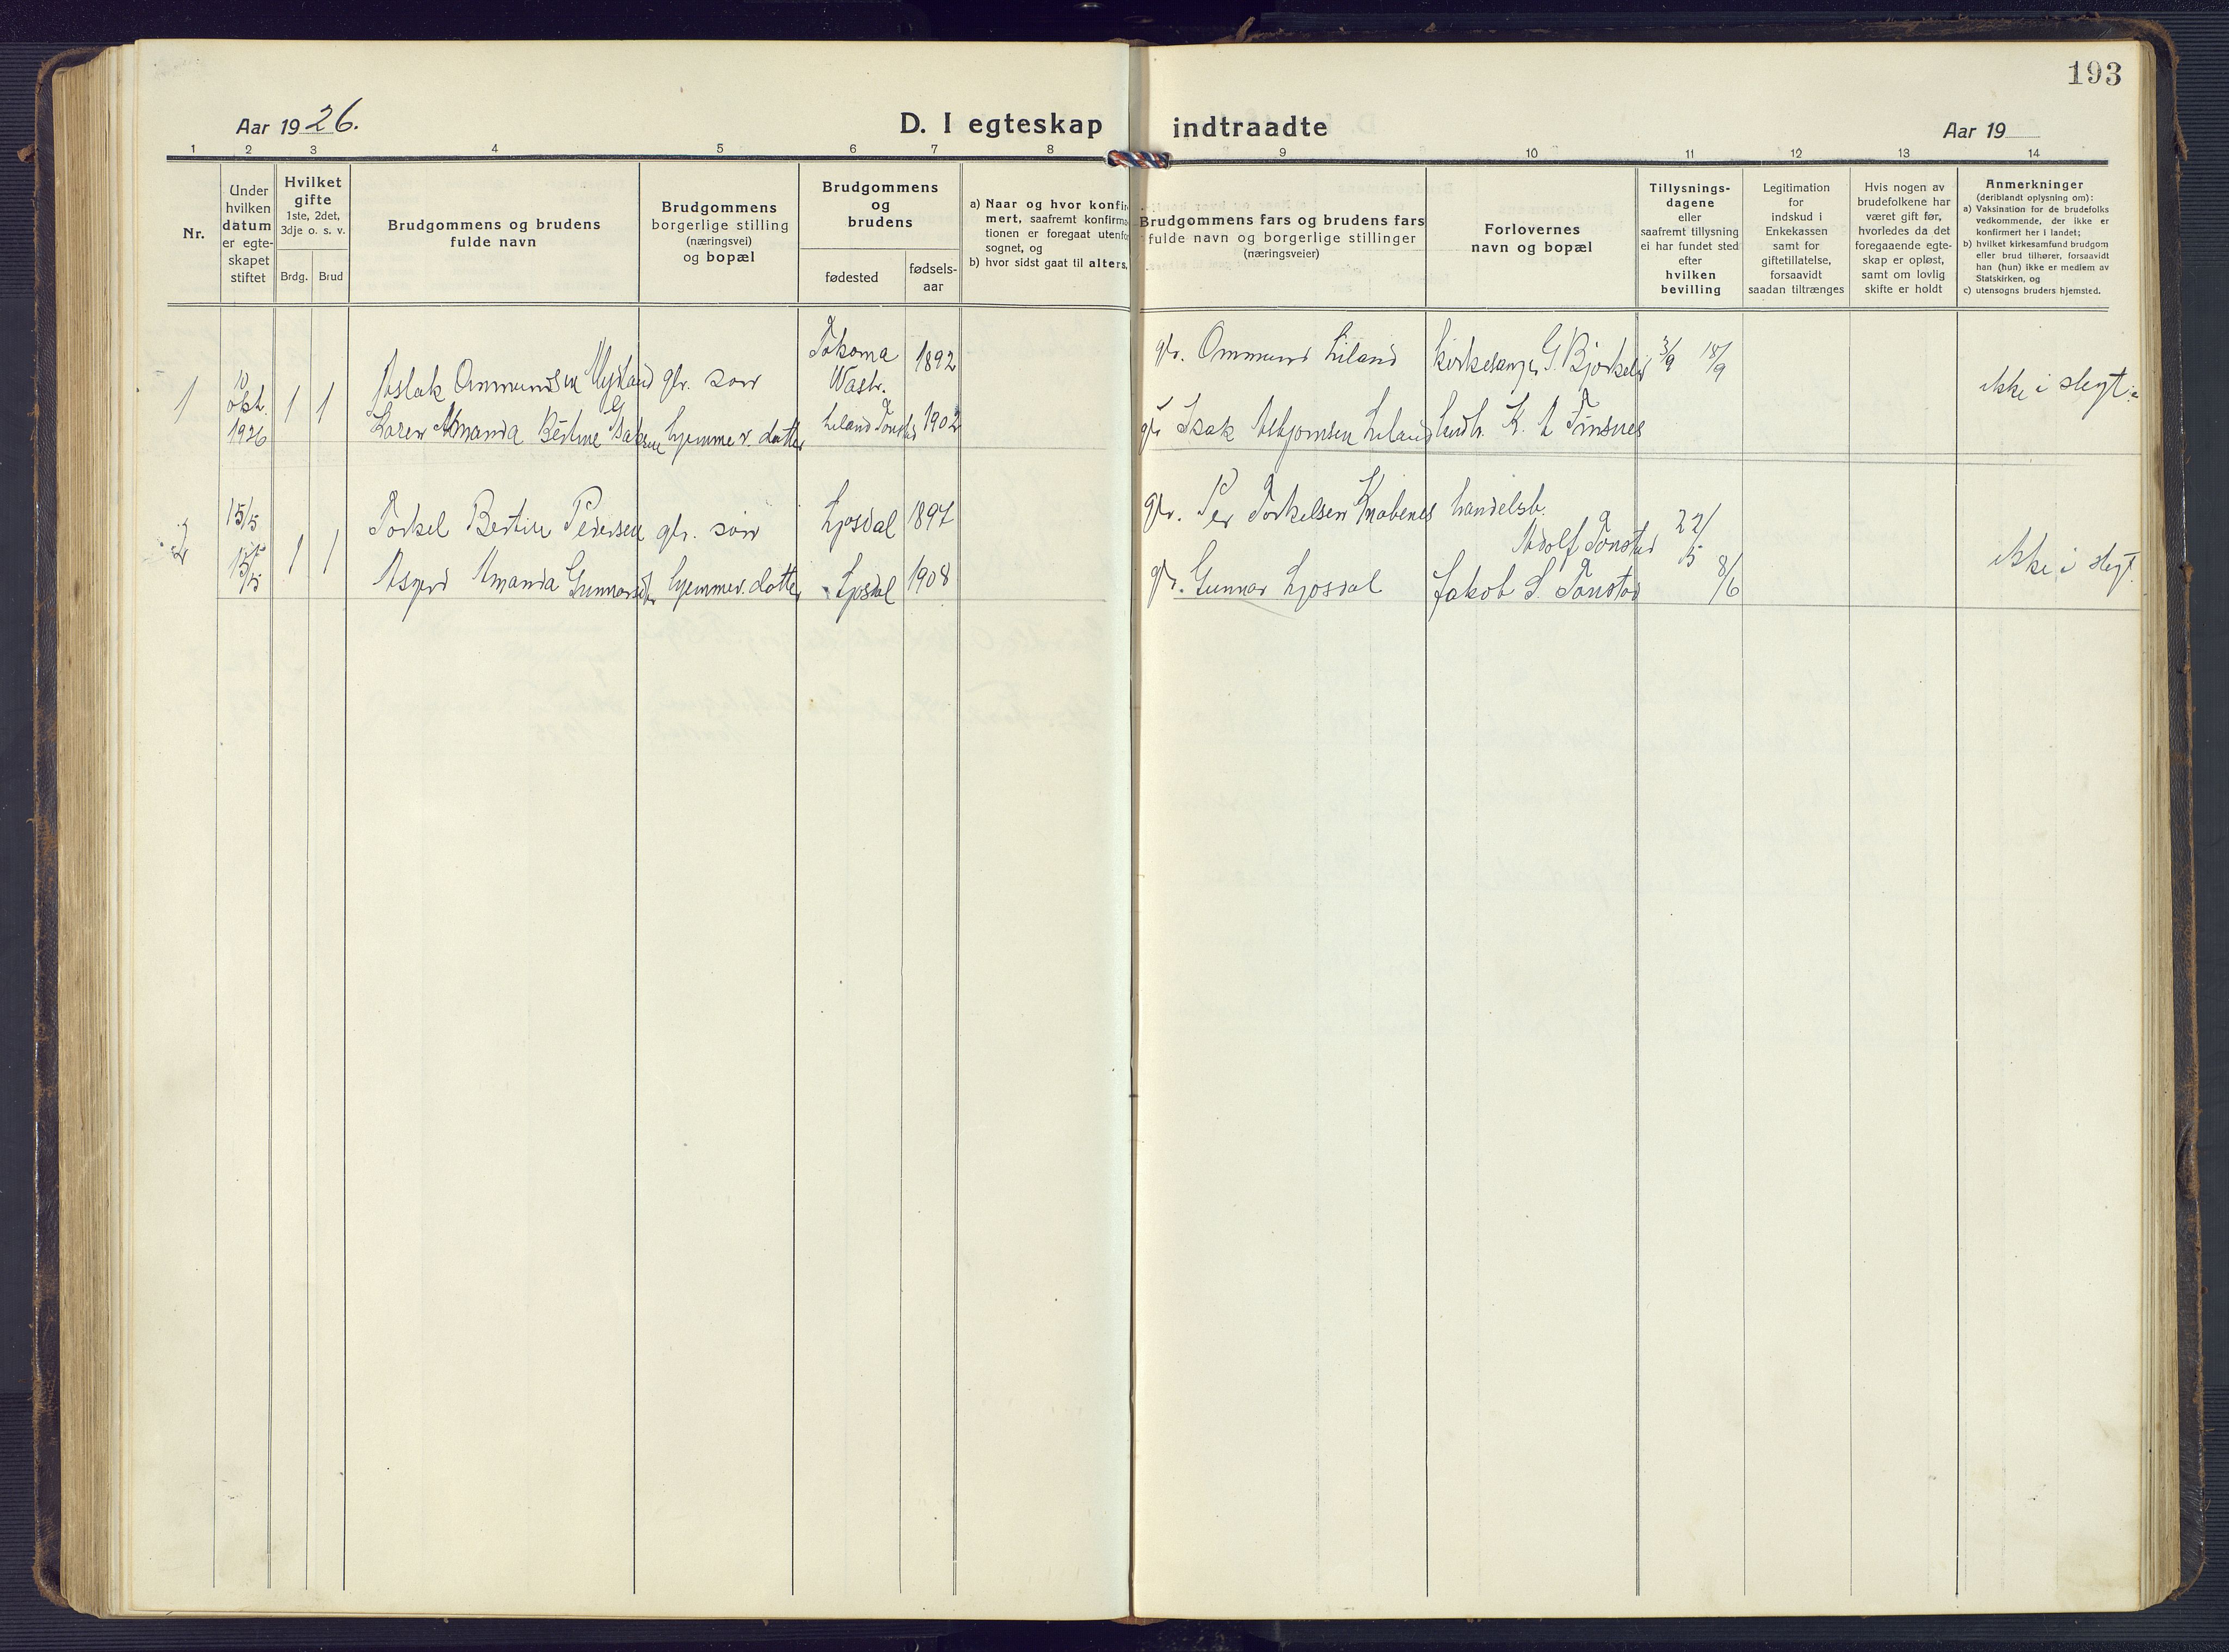 193
Aar 1926.
D. I egteskap indtraadte
Aar 19
1 2 3 4 5 6 7 8 9 10 11 12 13 14
Nr.
Under
hvilken
datum
er egte-
skapet
stiftet
Hvilket
gifte
1ste, 2det,
3dje o. s. v.
Brdg. Brud
Brudgommens og brudens
fulde navn
Brudgommens
borgerlige stilling
(næringsvei)
og bopæl
Brudgommens
og
brudens
fødested
fødsels-
aar
a) Naar og hvor konfir-
mert, saafremt konfirma-
tionen er foregaat utenfor
sognet, og
b) hvor sidst gaat til alters.
Brudgommens fars og brudens fars
fulde navn og borgerlige stillinger
(næringsveier)
Forlovernes
navn og bopæl
Tillysnings-
dagene
eller
saafremt tillysning
ei har fundet sted
efter
hvilken
bevilling
Legitimation
for
indskud i
Enkekassen
samt for
giftetillatelse,
forsaavidt
saadan tiltrænges
Hvis nogen av
brudefolkene har
været gift før,
hvorledes da det
foregaaende egte-
skap er opløst,
samt om lovlig
skifte er holdt
Anmerkninger
(deriblandt oplysning om):
a) Vaksination for de brudefolks
vedkommende, der ikke er
konfirmert her i landet;
b) hvilket kirkesamfund brudgom
eller brud tilhører, forsaavidt
han (hun) ikke er medlem av
Statskirken, og
c) utensogns bruders hjemsted.
1
10
okt.
1926
1 1
Aslak Ommundsen
Karen Amanda Bertine
gbr. søn
hjemmev. datter
Takoma
Wash.
1892
Liland Tonstad 1902
gbr. Ommund Liland
gbr Isak Asbjornsen Liland
kirkesanger G. Bjorkelid
K. A Finsnes
3/9 18/9
ikke i slegt.
2
15/5
15/5
1 1
Torkel Bertin Pedersen
Asgerd Amanda Gunnarsdtr
gbr. søn
hjemmev. datter
Ljosdal 1897
Ljosdal 1908
gbr. Per Torkelsen Knabenes
gbr. Gunnar Ljosdal
handelsb.
Adolf Tonstad
Jakob S. Tonstad
22/5 8/6
ikke i slegt.